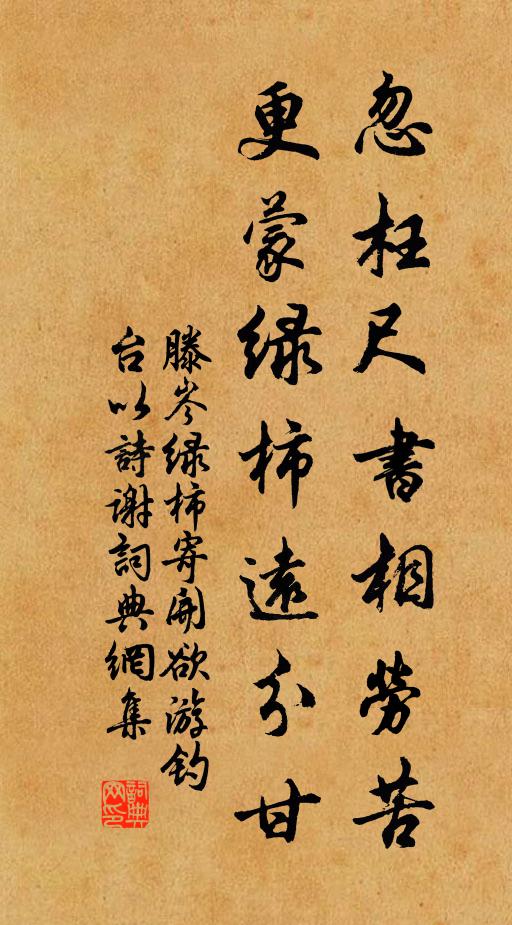 忽枉尺書相勞苦
更蒙緑柿遠分甘
滕岑緑柿寄開欲游釣
台以詩謝詞典網集
詞典
网印